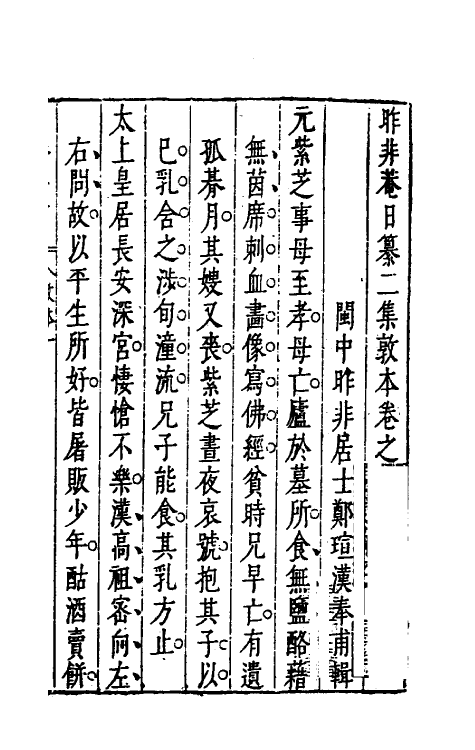 昨非菴日纂二集敦本卷之
閩中昨非居士鄭瑄漢奉甫輯
元紫芝事母至孝。母亡。廬於墓所。食無鹽酪藉
無茵席。刺血畫像寫佛經。貧時兄早亡。有遺
孤朞月。其嫂又喪。紫芝晝夜哀號。抱其子。以
已乳含之。涉旬潼流。兄子能食。其乳方止。
太上皇居長安深宮。悽愴不樂。漢高祖密向左
右問故。以平生所好。皆屠販少年。酤酒賣餅。